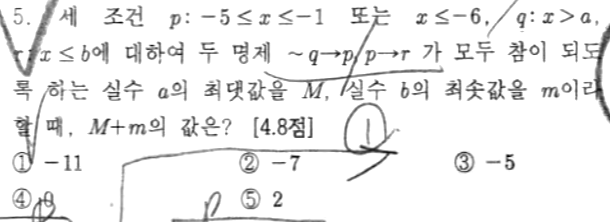 5. 세 조건 p: -5≤x≤-1 또는 x≤-6, q: x>a,
r: x≤b에 대하여 두 명제 ~q→p, p→r 가 모두 참이 되도
록 하는 실수 a의 최댓값을 M, 실수 b의 최솟값을 m이라
할 때, M+m의 값은? [4.8점] ①
① -11 ② -7 ③ -5
④ ⑤ 2